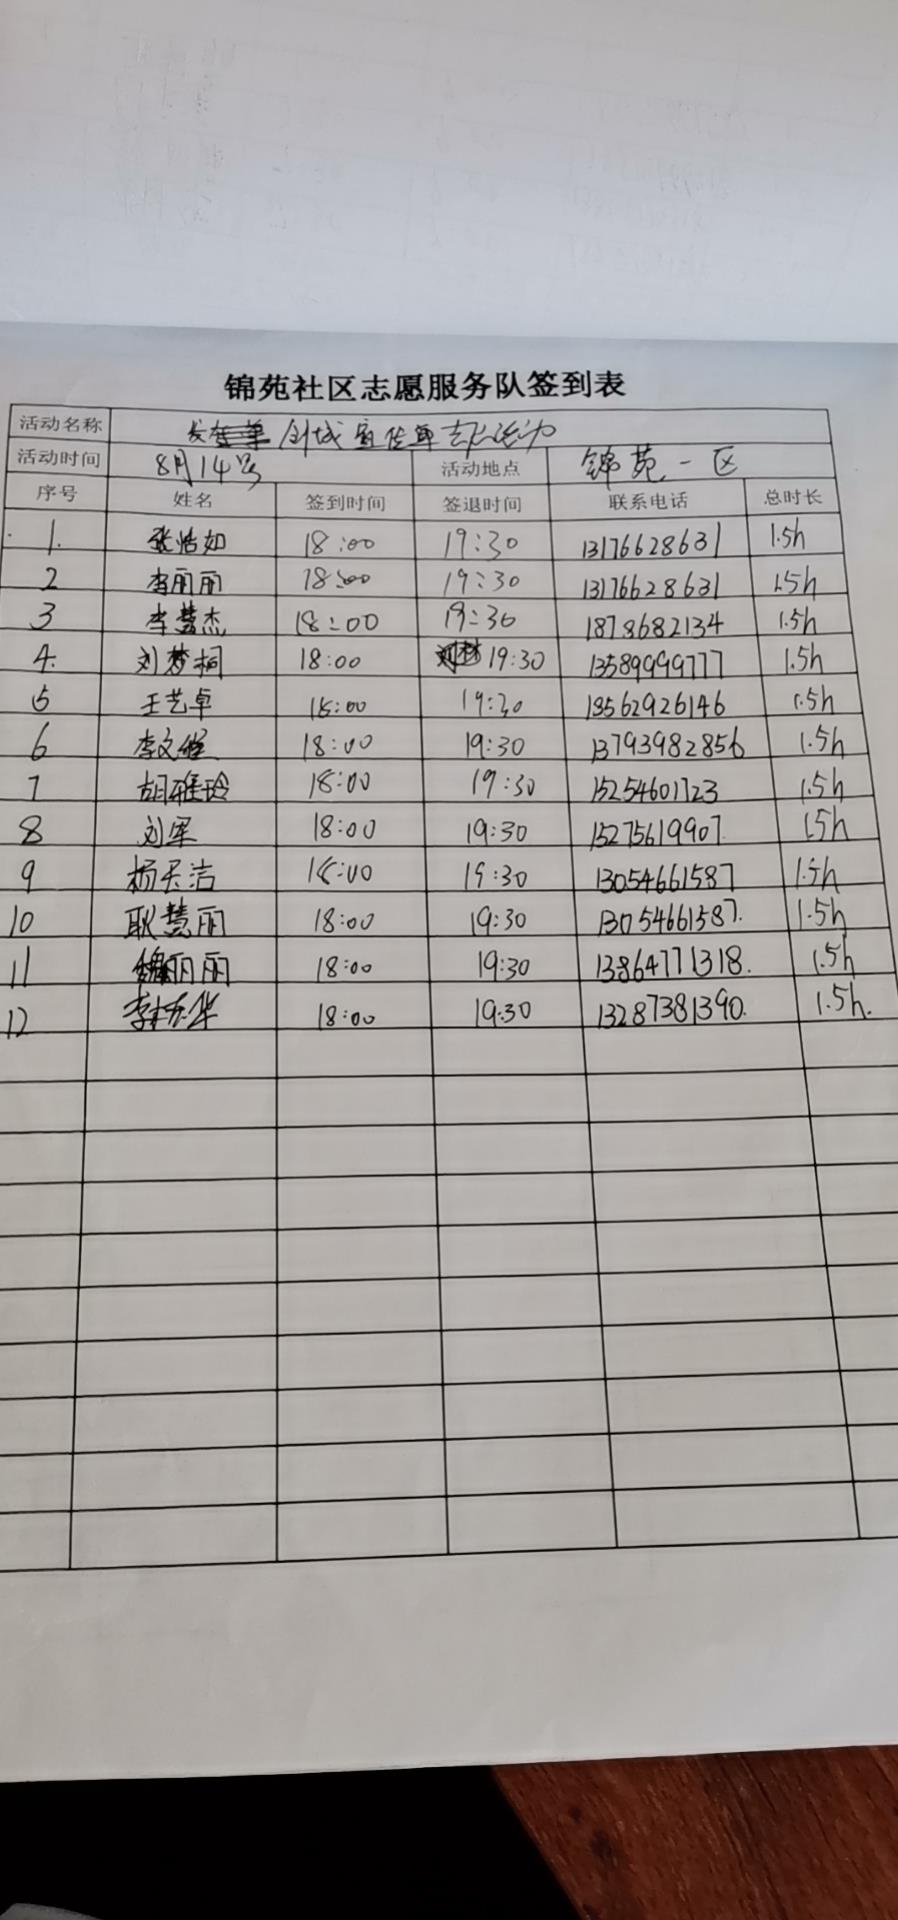 锦苑社区志愿服务队签到表
活动名称 创城宣传单志愿活动
活动时间 8月14号 活动地点 锦苑一区
序号 姓名 签到时间 签退时间 联系电话 总时长
1. 张浩如 18:00 19:30 13176628631 1.5h
2 李丽丽 18:00 19:30 13176628631 1.5h
3 李慧杰 18:00 19:30 1878682134 1.5h
4. 刘梦桐 18:00 19:30 13589999777 1.5h
5 王艺卓 18:00 19:30 18562926146 1.5h
6 李文 18:00 19:30 13793982856 1.5h
7 胡雅玲 18:00 19:30 15254601723 1.5h
8 刘军 18:00 19:30 15275619907. 1.5h
9 杨天洁 18:00 19:30 13054661587 1.5h
10 耿慧丽 18:00 19:30 13054661587. 1.5h
11 魏丽丽 18:00 19:30 13864771318. 1.5h
12 李 华 18:00 19:30 13287381390. 1.5h.